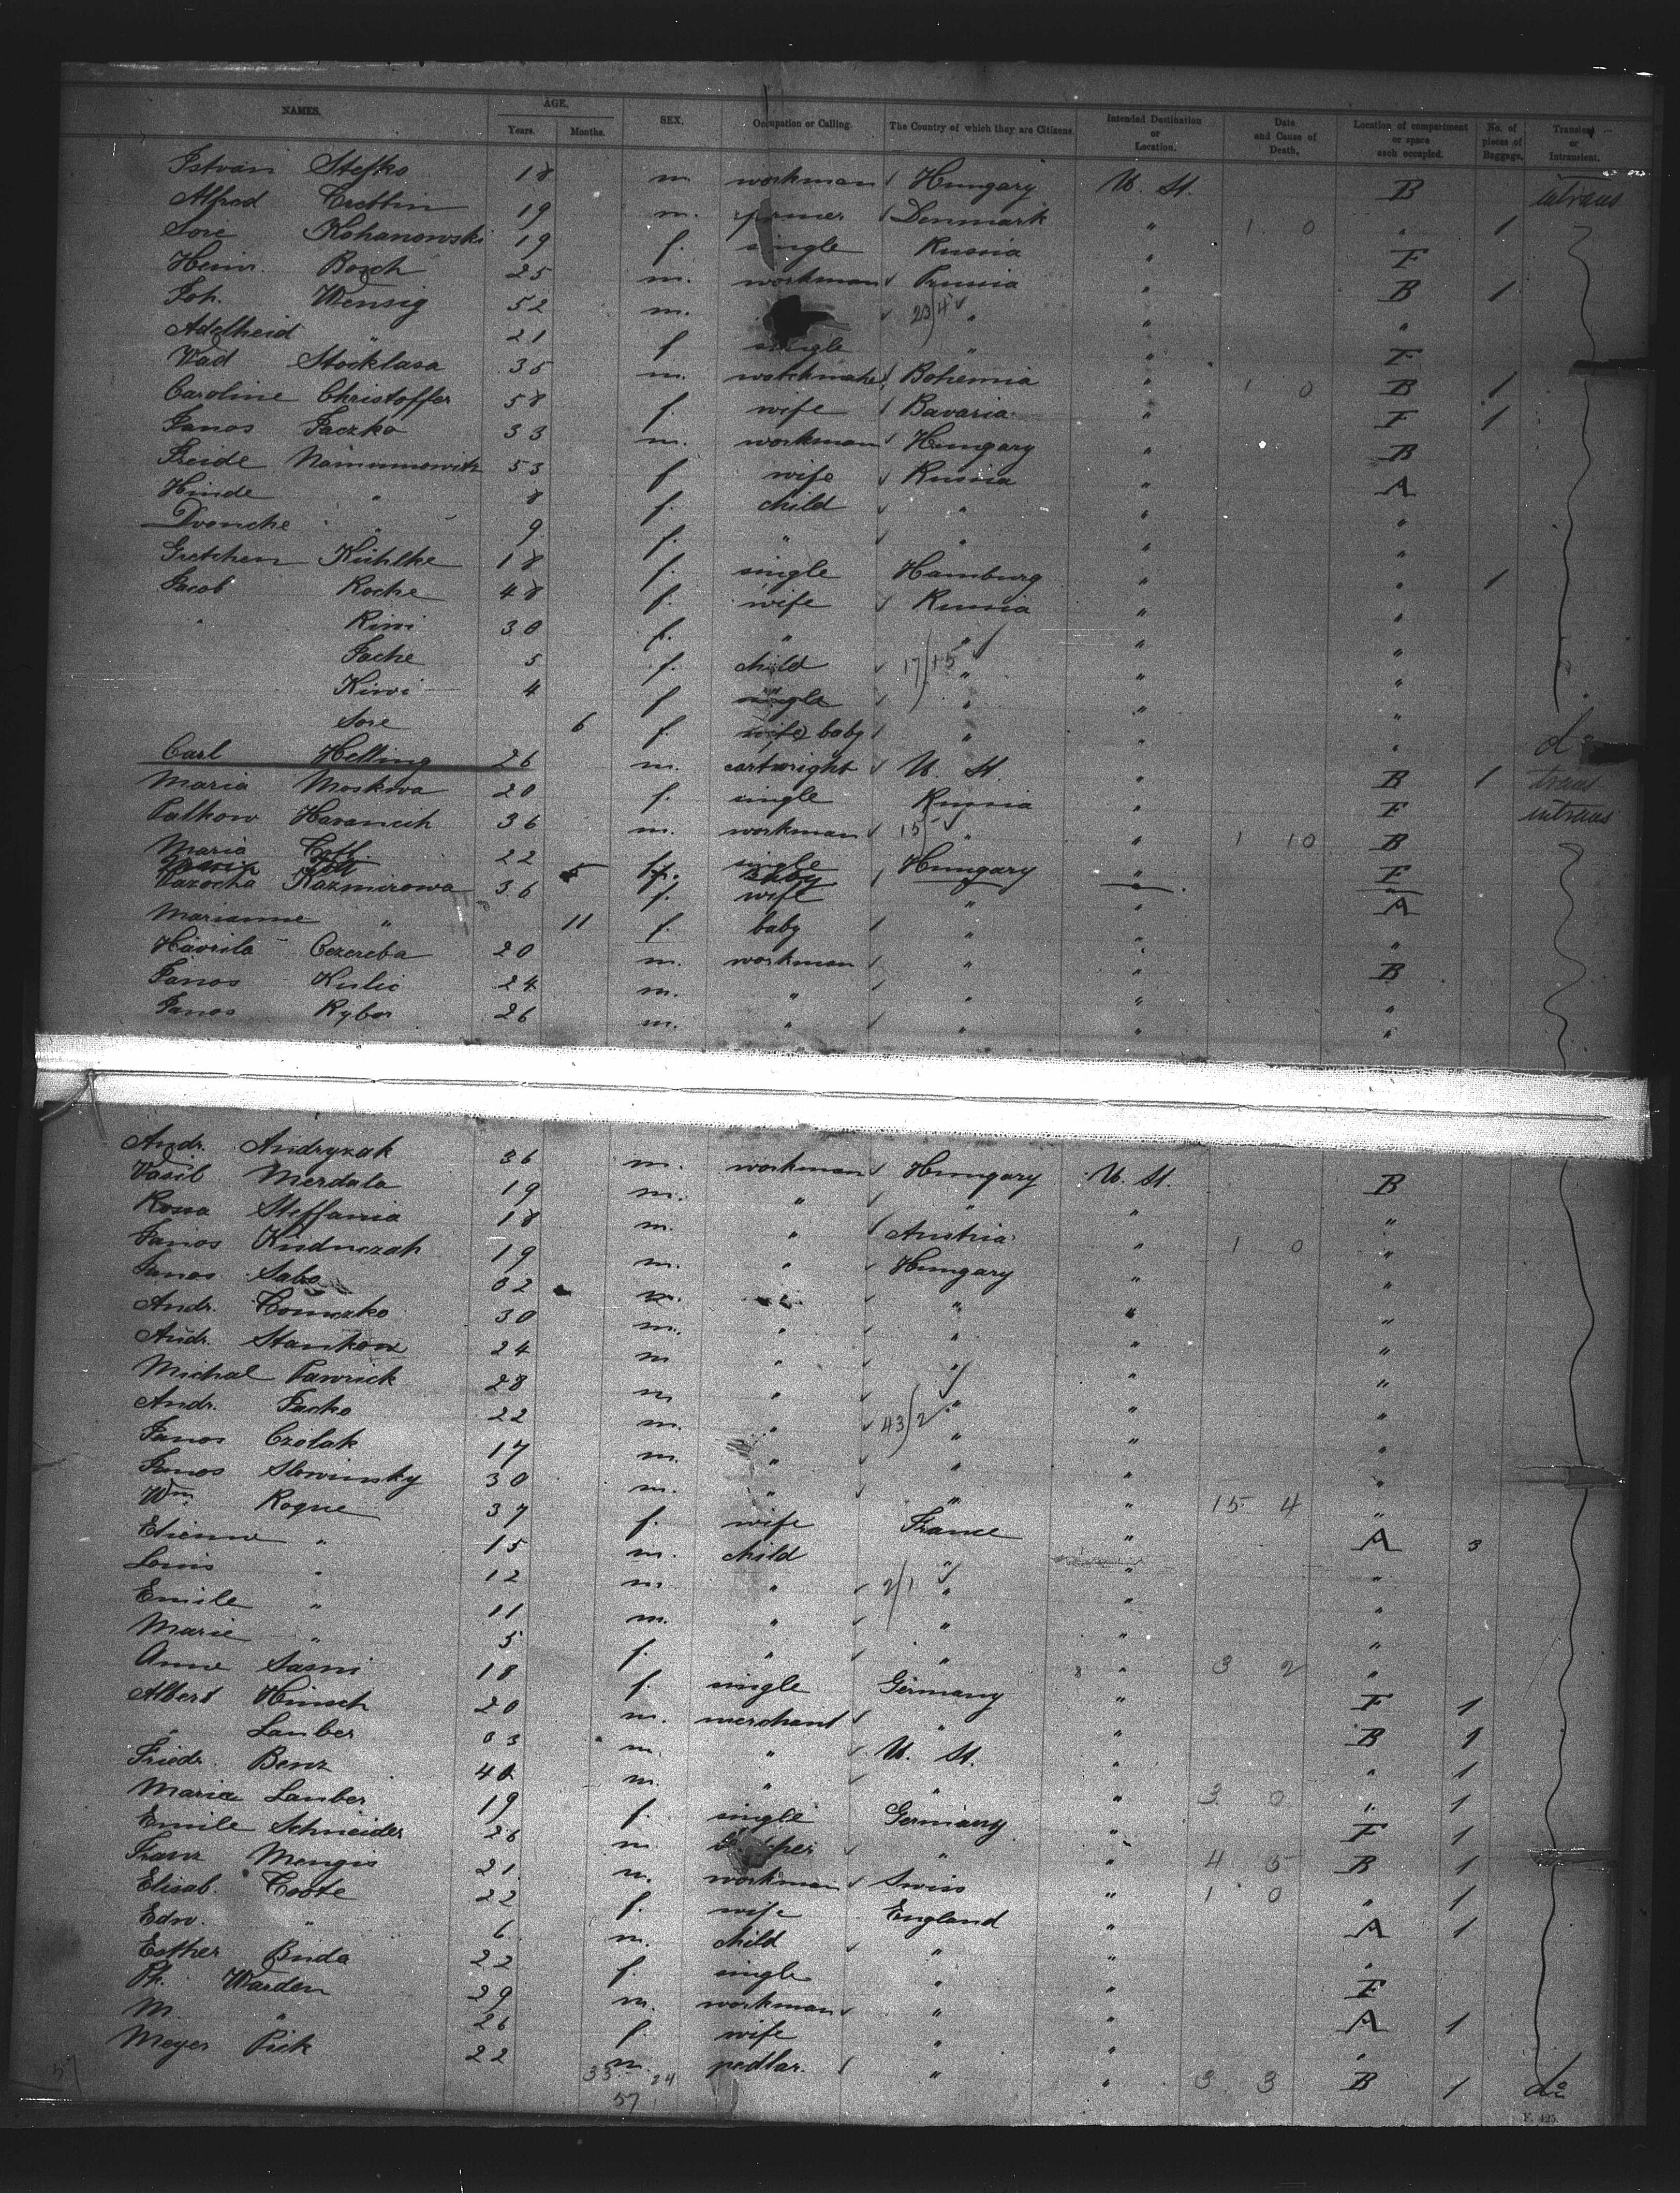 NAMES. AGE. SEX. Occupation or Calling. The Country of which they are Citizens. Intended Destination or Location. Date and Cause of Death. Location of compartment or space each occupied. No. of pieces of Baggage. Transient or Intransient.
Years. Months.
Istvan Stefko 18 m workman Hungary U. St. B intrans
Alfred 19 m. Denmark " 1 0 " 1
Sore Kohanowski 19 f. single Russia " F
Heinr. Bosch 25 m. workman Prussia " B 1
Joh. Wensig 52 m. 23/4 " " "
Adelheid " 21 f single " " F
Vad Stocklasa 35 m. Bohemia " 1 0 B 1
Caroline Christoffer 58 f. wife Bavaria " F 1
Janos Jaczko 33 m. workman Hungary " B
Freide 53 f wife Russia " A
Hinde " 8 f. child " " "
Dvonche " 9 f. " " " "
Gretchen Kühlke 18 f. single Hamburg " " 1
Jacob Roche 48 f. wife Russia " "
" Riwi 30 f. " " " "
Jache 5 f. child 17/15 " " "
Kiwi 4 f single " " "
Sore 6 f. wife baby " " " do
Carl Helling 26 m. cartwright U. St. " B 1 trans
Maria Moskwa 20 f. single Russia " F intrans
Palkow 36 m. workman 15/ " " 1 10 B
Maria 22 f. single Hungary " F
5 baby
Kazmirowa 36 f. wife " " A
Marianne " 11 f. baby " " "
Havrila Cezereba 20 m. workman " " B
Janos Kulic 24 m. " " " "
Janos Rybar 26 m. " " " "
Andr. Andryzak 36 m. workman Hungary U. St. B
Vasil Merdala 19 m. " " " "
Rosa Steffania 18 m. " Austria " 1 0 "
Janos 19 m. " Hungary " "
Janos Sabo 32 m. " " " "
Andr. Tomczko 30 m. " " " "
Andr. Stankow 24 m " " " "
Michal Pawrick 28 m " " " "
Andr. Jacko 22 m. " 43/2 " " "
Janos Czolak 17 m. " " " "
Janos Slowinsky 30 m. " " " 15 4 "
Wm. Rogue 37 f. wife France " A 3
Etienne " 15 m. child " " "
Louis " 12 m. " 2/1 " " "
Emile " 11 m. " " " "
Marie " 5 f. " " " 3 2 "
Anne Sasni 18 f. single Germany " F 1
Albert Hinsch 20 m. merchant " " B 1
" Lauber 33 m. " U. St. " " 1
Friedr. Benz 40 m. " " " 3 0 " 1
Marie Lauber 19 f. single Germany " F 1
Emile Schneider 26 m. " " 4 5 B 1
Franz Mengis 21 m. workman Swiss " 1 0 " 1
Elisab. Coote 22 f. wife England " A 1
Edw. " 6 m. child " " "
Esther Buda 22 f. single " " F
Ph. Warden 29 m. workman " " A 1
M. " 26 f. wife " " "
Meyer Pick 22 m. pedlar. " " 3 3 B 1 do
33 24
57
57
F. 425.